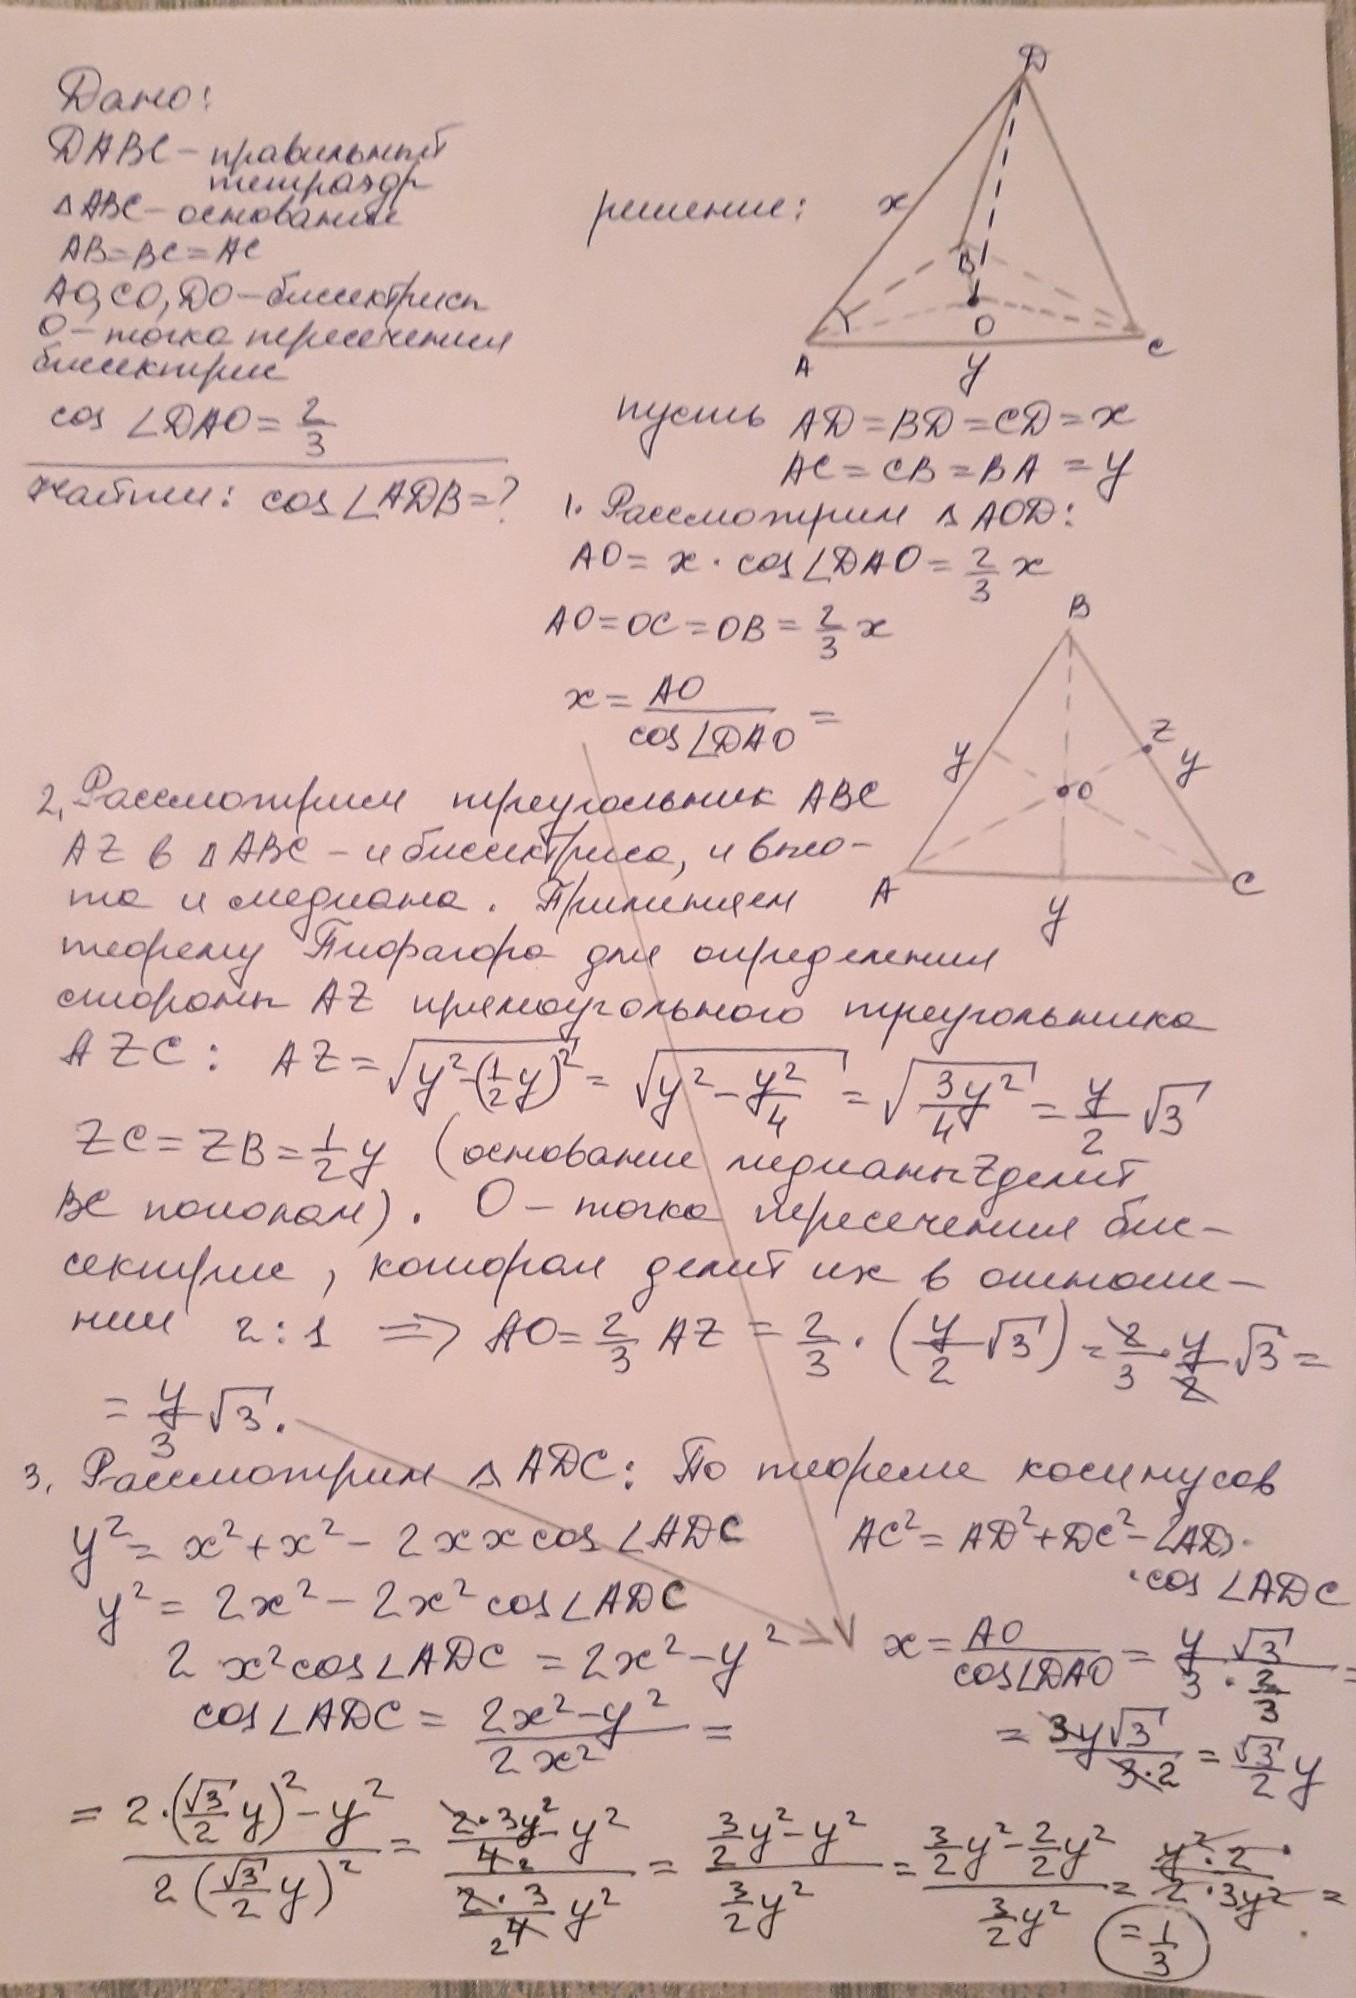 Дано:
DABC – правильный
тетраэдр
△ABC – основание
AB = BC = AC
AO, CO, DO – биссектрисы
O – точка пересечения
биссектрис
cos ∠DAO = 2/3
Найти: cos ∠ADB = ?
решение:
D
x
B
O
A
y
C
пусть AD = BD = CD = x
AC = CB = BA = y
1. Рассмотрим △AOD:
AO = x · cos ∠DAO = 2/3 x
AO = OC = OB = 2/3 x
x = AO / cos ∠DAO =
B
Z
y
y
O
A
C
y
2, Рассмотрим треугольник ABC
AZ в △ABC – и биссектриса, и высо-
та и медиана. Применяем
теорему Пифагора для определения
стороны AZ прямоугольного треугольника
AZC: AZ = √(y² - (1/2 y)²) = √(y² - y²/4) = √(3y²/4) = y/2 √3
ZC = ZB = 1/2 y (основание медианы Z делит
BC пополам). O – точка пересечения бис-
сектрис, которая делит их в отноше-
нии 2:1 ⇒ AO = 2/3 AZ = 2/3 · (y/2 √3) = 2/3 · y/2 √3 =
= y/3 √3.
3. Рассмотрим △ADC: По теореме косинусов
y² = x² + x² - 2xx cos ∠ADC
AC² = AD² + DC² - 2AD ·
· cos ∠ADC
y² = 2x² - 2x² cos ∠ADC
2x² cos ∠ADC = 2x² - y²
x = AO / cos ∠DAO = y √3 / (3 · 2/3) =
cos ∠ADC = (2x² - y²) / 2x² =
= 3y√3 / (3·2) = √3/2 y
= (2·(√3/2 y)² - y²) / (2(√3/2 y)²) = (2·3y²/4 - y²) / (2·3/4 y²) = (3/2 y² - y²) / (3/2 y²) = (3/2 y² - 2/2 y²) / (3/2 y²) = y²·2 / (2·3y²) =
= 1/3